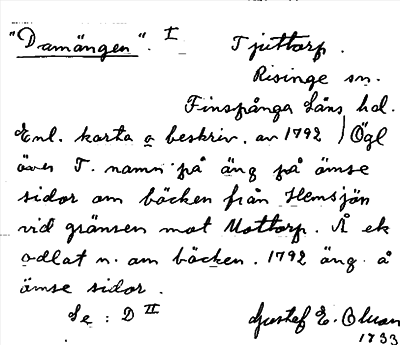 "Damängen". I Tjuttorp.
Risinge sn.
Finspånga Läns hd.
Enl. karta o beskriv. av 1792 ) Ögl
över T. namn på äng på ömse
sidor om bäcken från Hemsjön
vid gränsen mot Mottorp. Å ek
odlat n. om bäcken. 1792 äng å
ömse sidor.
Se: D II Gustef E. Olsson
1933